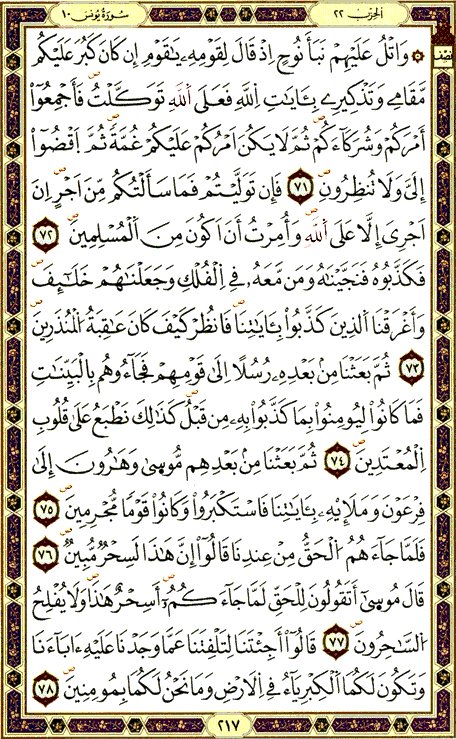 الحزب ٢٢
سورة يونس ١٠
نصف
وَاتْلُ عَلَيْهِمْ نَبَأَ نُوحٍ اِذْ قَالَ لِقَوْمِهِۦ يَٰقَوْمِ إِن كَانَ كَبُرَ عَلَيْكُم
مَّقَامِے وَتَذْكِيرِے بِـَٔايَٰتِ اِ۬للَّهِ فَعَلَى اَ۬للَّهِ تَوَكَّلْتُ فَأَجْمِعُوٓاْ
أَمْرَكُمْ وَشُرَكَآءَكُمْ ثُمَّ لَا يَكُنَ اَمْرُكُمْ عَلَيْكُمْ غُمَّةٗ ثُمَّ اَ۪قْضُوٓاْ
إِلَيَّ وَلَا تُنظِرُونِ ٧١ فَإِن تَوَلَّيْتُمْ فَمَا سَأَلْتُكُم مِّنَ اَجْرٍ اِنَ
اَجْرِيَ إِلَّا عَلَى اَ۬للَّهِ وَأُمِرْتُ أَنَ اَكُونَ مِنَ اَ۬لْمُسْلِمِينَ ٧٢
فَكَذَّبُوهُ فَنَجَّيْنَٰهُ وَمَن مَّعَهُۥ فِے اِ۬لْفُلْكِ وَجَعَلْنَٰهُمْ خَلَٰٓئِفَ
وَأَغْرَقْنَا اَ۬لذِينَ كَذَّبُواْ بِـَٔايَٰتِنَا فَانظُرْ كَيْفَ كَانَ عَٰقِبَةُ اُ۬لْمُنذَرِينَ
٧٣ ثُمَّ بَعَثْنَا مِنۢ بَعْدِهِۦ رُسُلًا اِلَىٰ قَوْمِهِمْ فَجَآءُوهُم بِالْبَيِّنَٰتِ
فَمَا كَانُواْ لِيُومِنُواْ بِمَا كَذَّبُواْ بِهِۦ مِن قَبْلُ كَذَٰلِكَ نَطْبَعُ عَلَىٰ قُلُوبِ
اِ۬لْمُعْتَدِينَ ٧٤ ثُمَّ بَعَثْنَا مِنۢ بَعْدِهِم مُّوسَىٰ وَهَٰرُونَ إِلَىٰ
فِرْعَوْنَ وَمَلَإِيْهِۦ بِـَٔايَٰتِنَا فَاسْتَكْبَرُواْ وَكَانُواْ قَوْمٗا مُّجْرِمِينَ ٧٥
فَلَمَّا جَآءَهُمُ اُ۬لْحَقُّ مِنْ عِندِنَا قَالُوٓاْ إِنَّ هَٰذَا لَسِحْرٞ مُّبِينٞ ٧٦
قَالَ مُوسَىٰٓ أَتَقُولُونَ لِلْحَقِّ لَمَّا جَآءَكُمُۥٓ أَسِحْرٌ هَٰذَا وَلَا يُفْلِحُ
اُ۬لسَّٰحِرُونَ ٧٧ قَالُوٓاْ أَجِئْتَنَا لِتَلْفِتَنَا عَمَّا وَجَدْنَا عَلَيْهِ ءَابَآءَنَا
وَتَكُونَ لَكُمَا اَ۬لْكِبْرِيَآءُ فِے اِ۬لَارْضِ وَمَا نَحْنُ لَكُمَا بِمُومِنِينَ ٧٨
٢١٧